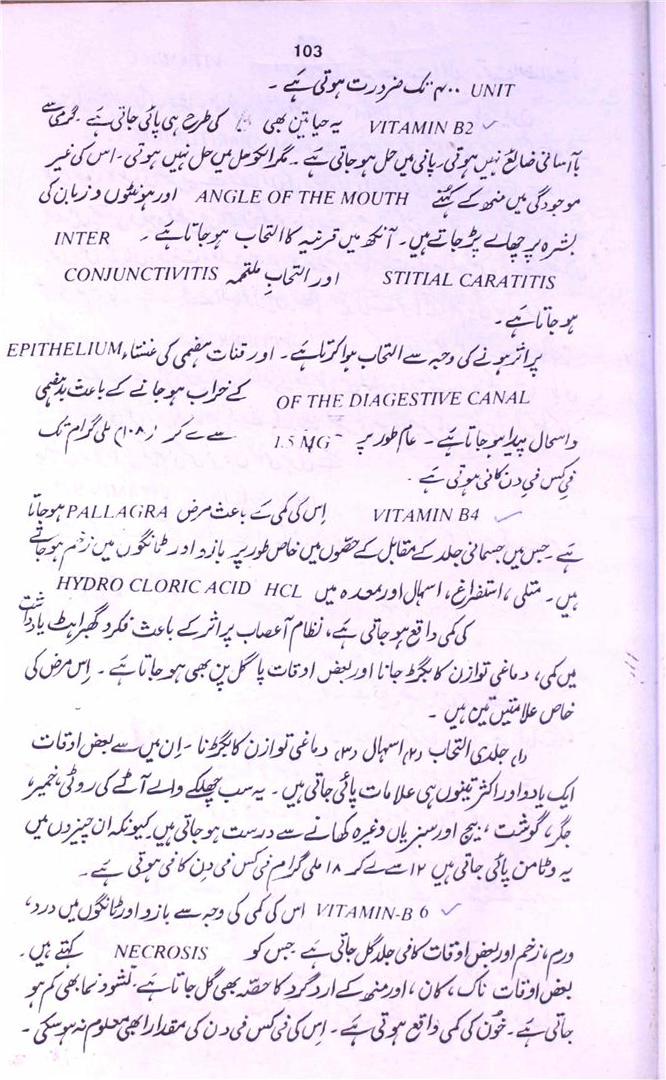 103
UNIT ۴۰۰ تک ضرورت ہوتی ہے ۔
VITAMIN B2 یہ حیاتین بھی کی طرح ہی پائی جاتی ہے ۔ گرمی سے
باآسانی ضائع نہیں ہوتی ۔ پانی میں حل ہو جاتی ہے ۔ مگر الکوحل میں حل نہیں ہوتی ۔ اس کی غیر
موجودگی میں منھ کے ANGLE OF THE MOUTH اور ہونٹوں و زبان کی
بشرہ پر چھالے پڑ جاتے ہیں ۔ آنکھ میں قرنیہ کا التحاب ہو جاتا ہے ۔ INTER
STITIAL CARATITIS اور التحابِ ملتحمہ CONJUNCTIVITIS
ہو جاتا ہے ۔
پر اثر ہونے کی وجہ سے التحاب ہوا کرتا ہے ۔ اور قنات ہضمی کی غشاء EPITHELIUM
OF THE DIAGESTIVE CANAL کے خراب ہو جانے کے باعث بدہضمی
و اسحال پیدا ہو جاتا ہے ۔ عام طور پر 1.5 MG سے لے کر (۱۰۸) ملی گرام تک
فی کس فی دن کافی ہوتی ہے ۔
VITAMIN B4 اِس کی کمی کے باعث مرض PALLAGRA ہو جاتا
ہے ۔ جس میں جسمانی جلد کے مقابل کے حصّوں میں خاص طور پر بازو اور ٹانگوں میں زخم ہو جاتے
ہیں ۔ متلی ، استفراغ ، اسہال اور معدہ میں HYDRO CLORIC ACID HCL
کی کمی واقع ہو جاتی ہے ، نظام آعصاب پر اثر کے باعث فکر و گھبراہٹ یاداشت
میں کمی ، دماغی توازن کا بگڑ جانا اور بعض اوقات پاگل پن بھی ہو جاتا ہے ۔ اِس مرض کی
خاص علامتیں تین ہیں ۔
(۱) جلدی التحاب (۲) اسہال (۳) دماغی توازن کا بگڑنا ۔ اِن میں سے بعض اوقات
ایک یا دو اور اکثر تینوں ہی علامات پائی جاتی ہیں ۔ یہ سب چھلکے والے آٹے کی روٹی ، خمیر ،
جگر ، گوشت ، بیج اور سبزیاں وغیرہ کھانے سے درست ہو جاتی ہیں کیونکہ ان چیزوں میں
یہ وٹامن پائی جاتی ہیں ۱۲ سے لے کر ۱۸ ملی گرام فی کس فی دِن کافی ہوتی ہے ۔
VITAMIN-B 6 اس کی کمی کی وجہ سے بازو اور ٹانگوں میں درد ،
ورم ، زخم اور بعض اوقات کافی جلد گل جاتی ہے جس کو NECROSIS کہتے ہیں ۔
بعض اوقات ناک ، کان ، اور منھ کے ارد گرد کا حصّہ بھی گل جاتا ہے ۔ نشوونما بھی کم ہو
جاتی ہے ۔ خوُن کی کمی واقع ہوتی ہے ۔ اس کی فی کس فی دن کی مقدار ابھی معلوم نہ ہو سکی ۔